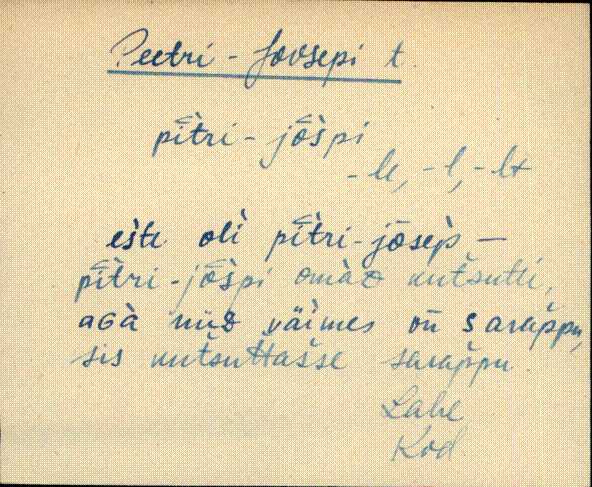 Peetri-Joosepi t.
pītri-jōspi
-le, -l, -lt
eśte oĺi pītri-jōsep̀ —
pītri-jōspi omàᴢ kutsutti,
aGà nüᴢ väìmes oñ sarappu,
sis kutsuttasse sarappu.
Lahe
Kod